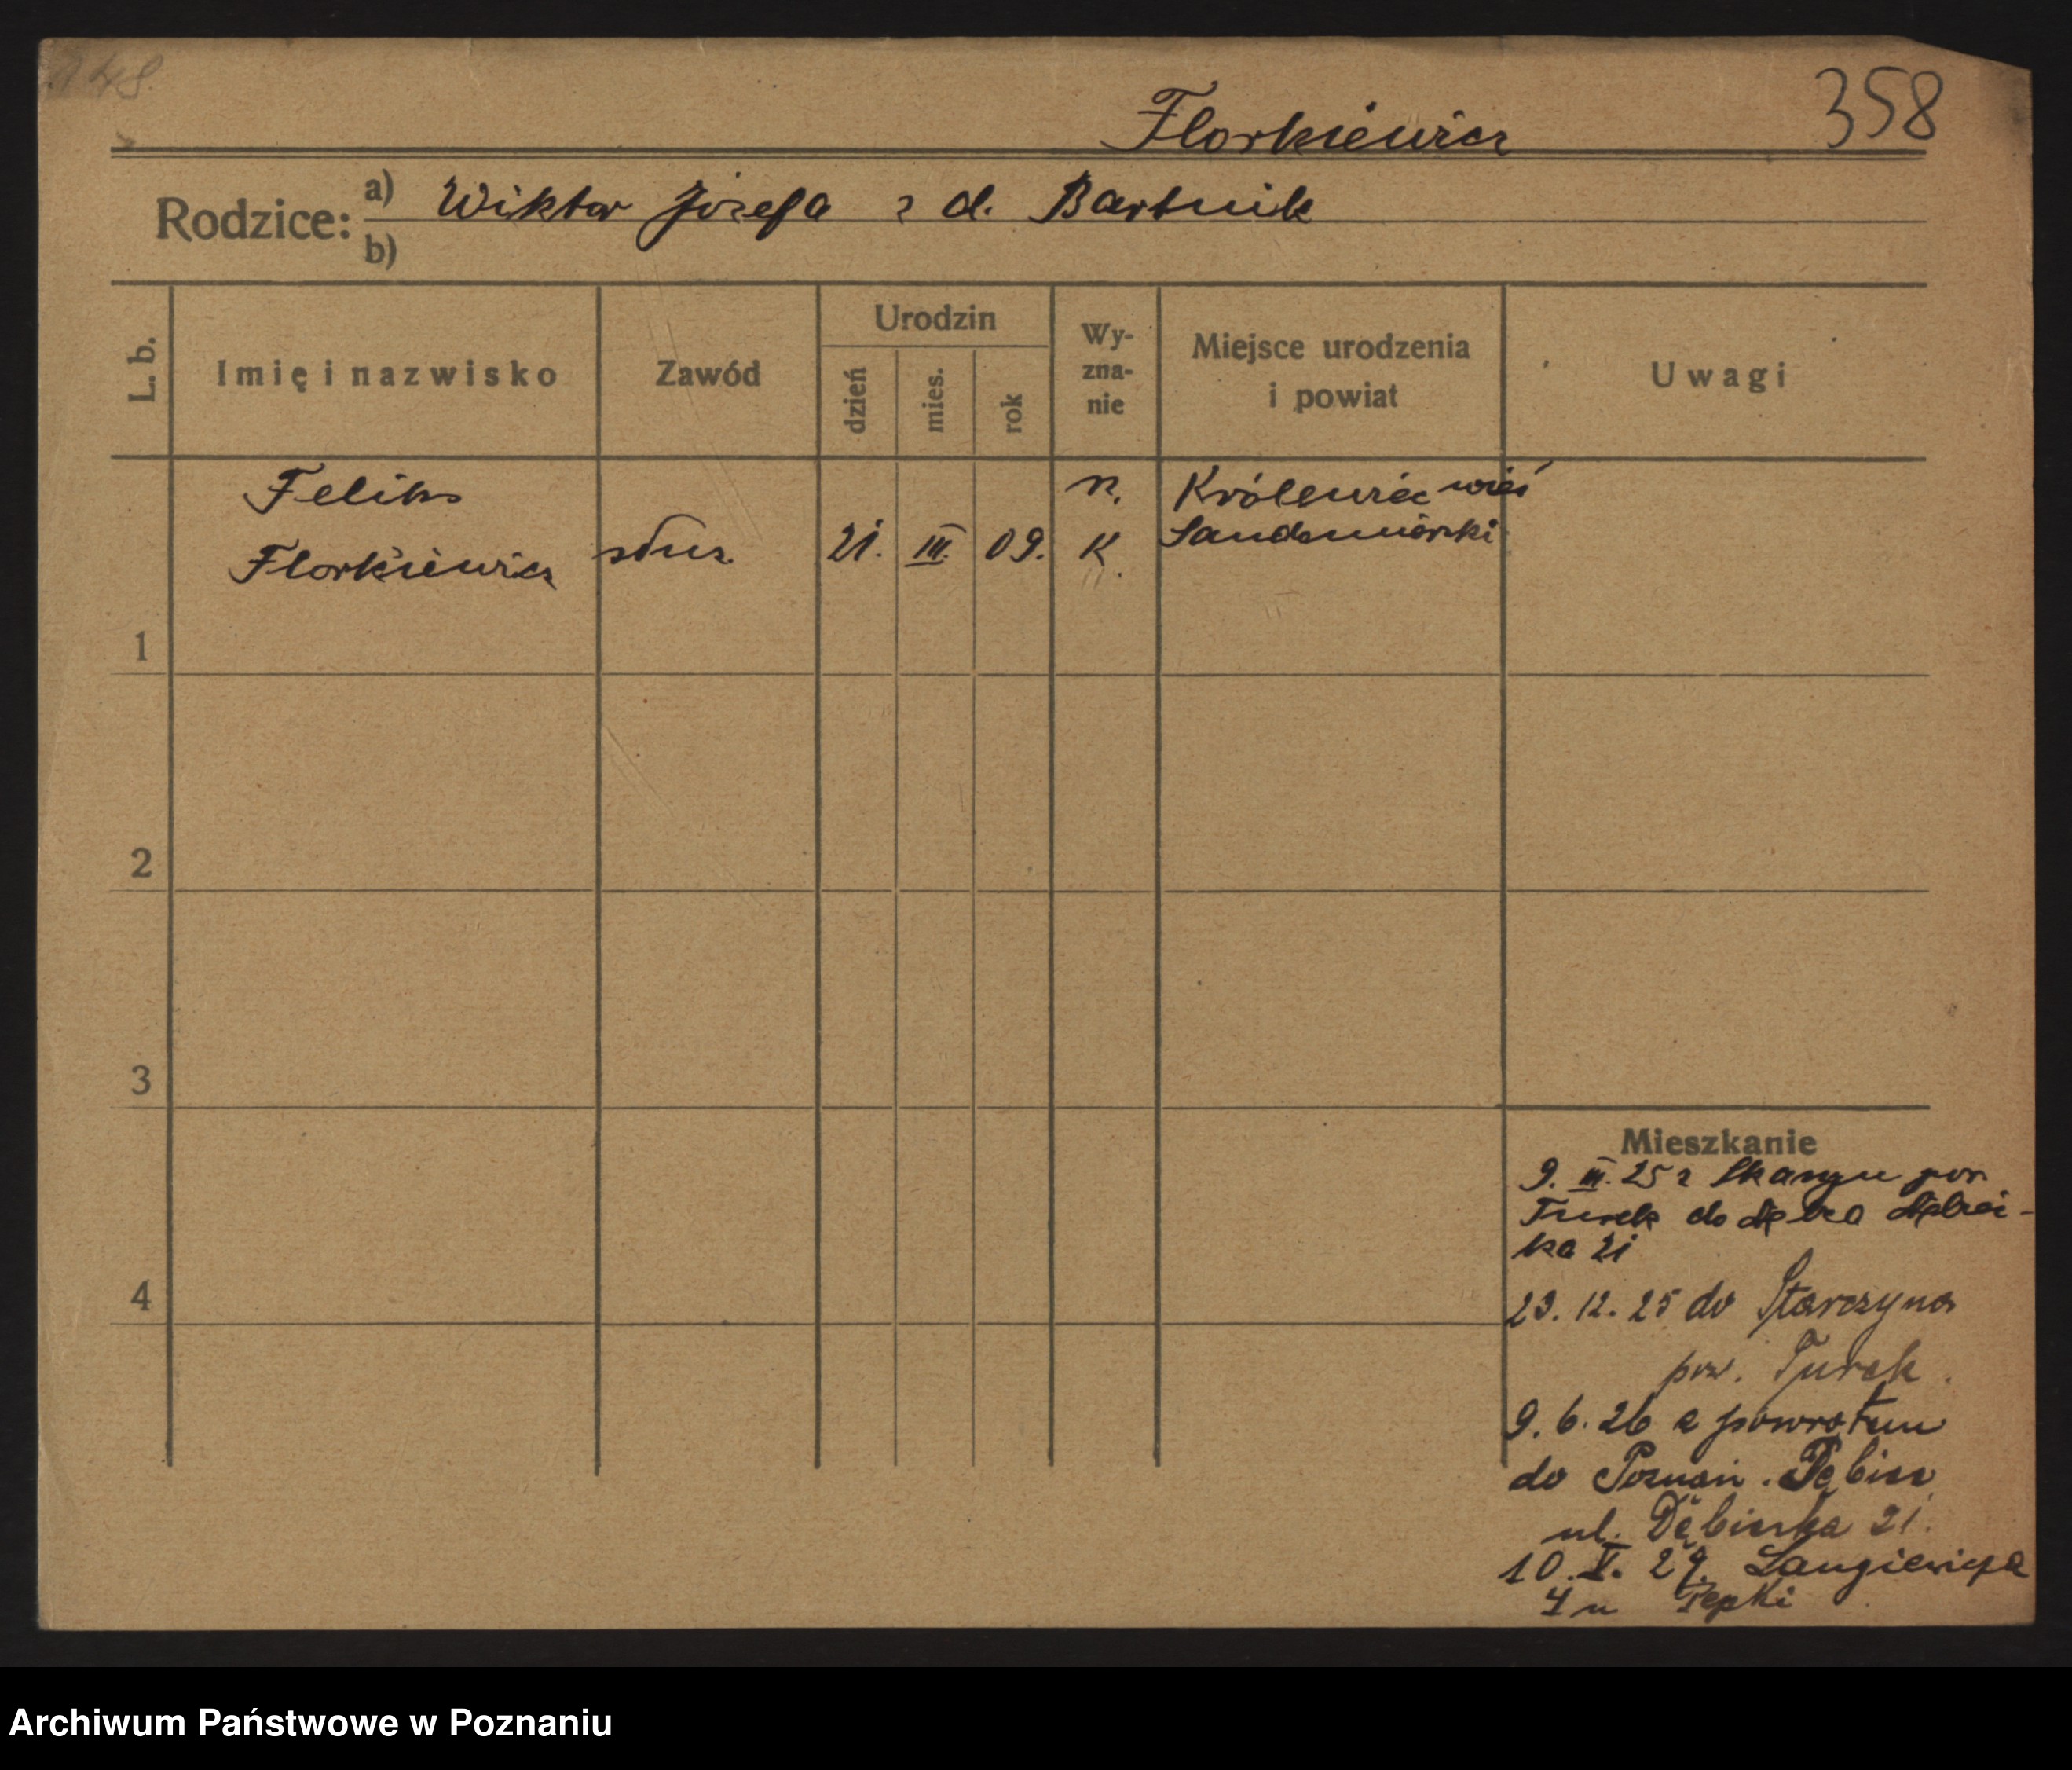 358
Florkiewicz
Rodzice: a) Wiktor Józefa z d. Bartnik
b)
L. b.
Imię i nazwisko
Zawód
Urodzin
dzień
mies.
rok
Wy-
zna-
nie
Miejsce urodzenia
i powiat
Uwagi
Feliks
Florkiewicz
służ.
21. III. 09.
r.
K.
Królewiec wieś
Sandomierski
1
2
3
4
Mieszkanie
9. III. 25 z pow.
Turek do
ka 21
23. 12. 25 do Starczyna
pow. Turek.
9. 6. 26 z powrotem
do Poznań. Dębiec
ul. Dębieńska 21.
10. V. 29. Langiewicza
4 u Pepki
Archiwum Państwowe w Poznaniu